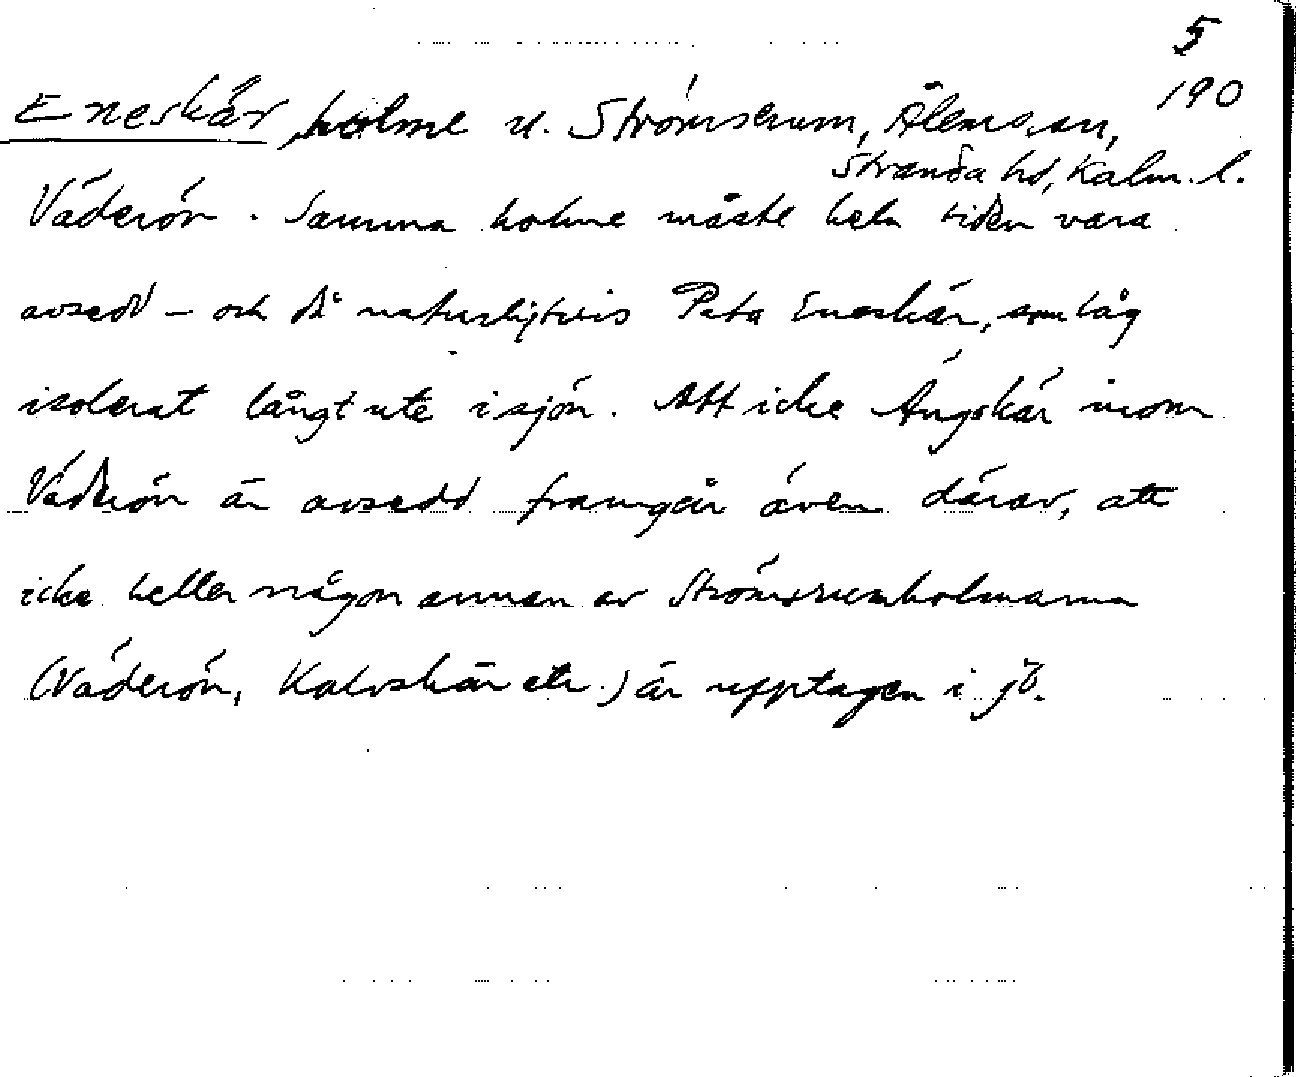 5
190
Eneskär, holme u. Strömserum, Ålems sn,
Stranda hd, Kalm. l.
Väderön. Samma holme måste hela tiden vara
avsedd – och då naturligtvis Peta Eneskär, som låg
isolerat långt ute i sjön. Att icke Ängskär inom
Väderön är avsedd framgår även därav, att
icke heller någon annan av Strömserumholmarna
(Väderön, Kalvskär etc.) är upptagen i jb.